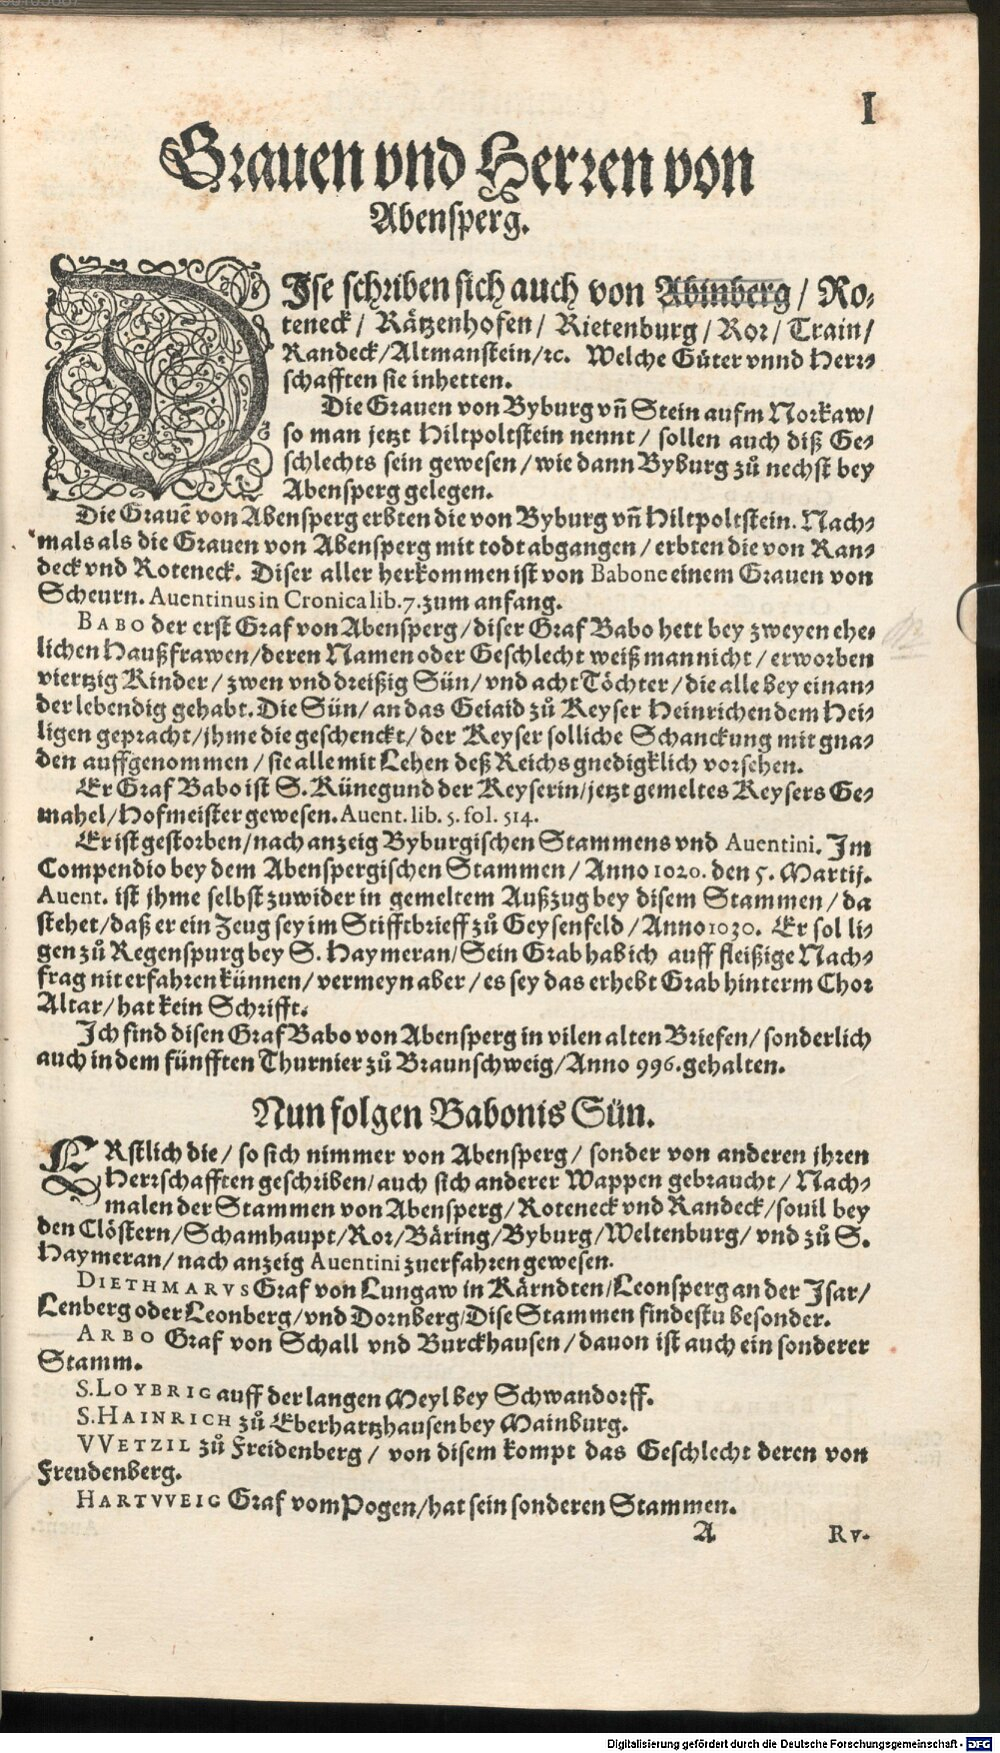 I
Grauen vnd Herren von
Abensperg.
DIse schriben sich auch von Abinberg / Ro-
teneck / Rätzenhofen / Rietenburg / Ror / Train /
Randeck / Altmanstein / ꝛc. Welche Güter vnnd Herr-
schafften sie inhetten.
Die Grauen von Byburg vn̄ Stein aufm Norkaw /
so man jetzt Hiltpoltstein nennt / sollen auch diß Ge-
schlechts sein gewesen / wie dann Byburg zů nechst bey
Abensperg gelegen.
Die Grauē von Abensperg erbten die von Byburg vn̄ Hiltpoltstein. Nach-
mals als die Grauen von Abensperg mit todt abgangen / erbten die von Ran-
deck vnd Roteneck. Diser aller herkommen ist von Babone einem Grauen von
Scheurn. Auentinus in Cronica lib. 7. zum anfang.
BABO der erst Graf von Abensperg / diser Graf Babo hett bey zweyen ehe-
lichen Haußfrawen / deren Namen oder Geschlecht weiß man nicht / erworben
viertzig Kinder / zwen vnd dreißig Sün / vnd acht Töchter / die alle bey einan-
der lebendig gehabt. Die Sün / an das Geiaid zů Keyser Heinrichen dem Hei-
ligen gepracht / jhme die geschenckt / der Keyser solliche Schanckung mit gna-
den auffgenommen / sie alle mit Lehen deß Reichs gnedigklich vorsehen.
Er Graf Babo ist S. Künegund der Keyserin / jetzt gemeltes Keysers Ge-
mahel / Hofmeister gewesen. Auent. lib. 5. fol. 514.
Er ist gestorben / nach anzeig Byburgischen Stammens vnd Auentini. Im
Compendio bey dem Abenspergischen Stammen / Anno 1020. den 5. Martij.
Auent. ist jhme selbst zuwider in gemeltem Außzug bey disem Stammen / da
stehet / daß er ein Zeug sey im Stifftbrieff zů Geysenfeld / Anno 1030. Er sol li-
gen zů Regenspurg bey S. Haymeran / Sein Grab hab ich auff fleißige Nach-
frag nit erfahren künnen / vermeyn aber / es sey das erhebt Grab hinterm Chor
Altar / hat kein Schrifft.
Ich find disen Graf Babo von Abensperg in vilen alten Briefen / sonderlich
auch in dem fünfften Thurnier zů Braunschweig / Anno 996. gehalten.
Nun folgen Babonis Sün.
ERstlich die / so sich nimmer von Abensperg / sonder von anderen jhren
Herrschafften geschriben / auch sich anderer Wappen gebraucht / Nach-
malen der Stammen von Abensperg / Roteneck vnd Randeck / souil bey
den Clöstern / Schamhaupt / Ror / Bäring / Byburg / Weltenburg / vnd zů S.
Haymeran / nach anzeig Auentini zuerfahren gewesen.
DIETHMARVS Graf von Lungaw in Kärndten / Leonsperg an der Isar /
Lenberg oder Leonberg / vnd Dornberg / Dise Stammen findestu besonder.
ARBO Graf von Schall vnd Burckhausen / dauon ist auch ein sonderer
Stamm.
S. LOYBRIG auff der langen Meyl bey Schwandorff.
S. HAINRICH zů Eberhartzhausen bey Mainburg.
VVETZIL zů Freidenberg / von disem kompt das Geschlecht deren von
Freudenberg.
HARTVVEIG Graf vom Pogen / hat sein sonderen Stammen.
A
Rv-
Digitalisierung gefördert durch die Deutsche Forschungsgemeinschaft - DFG